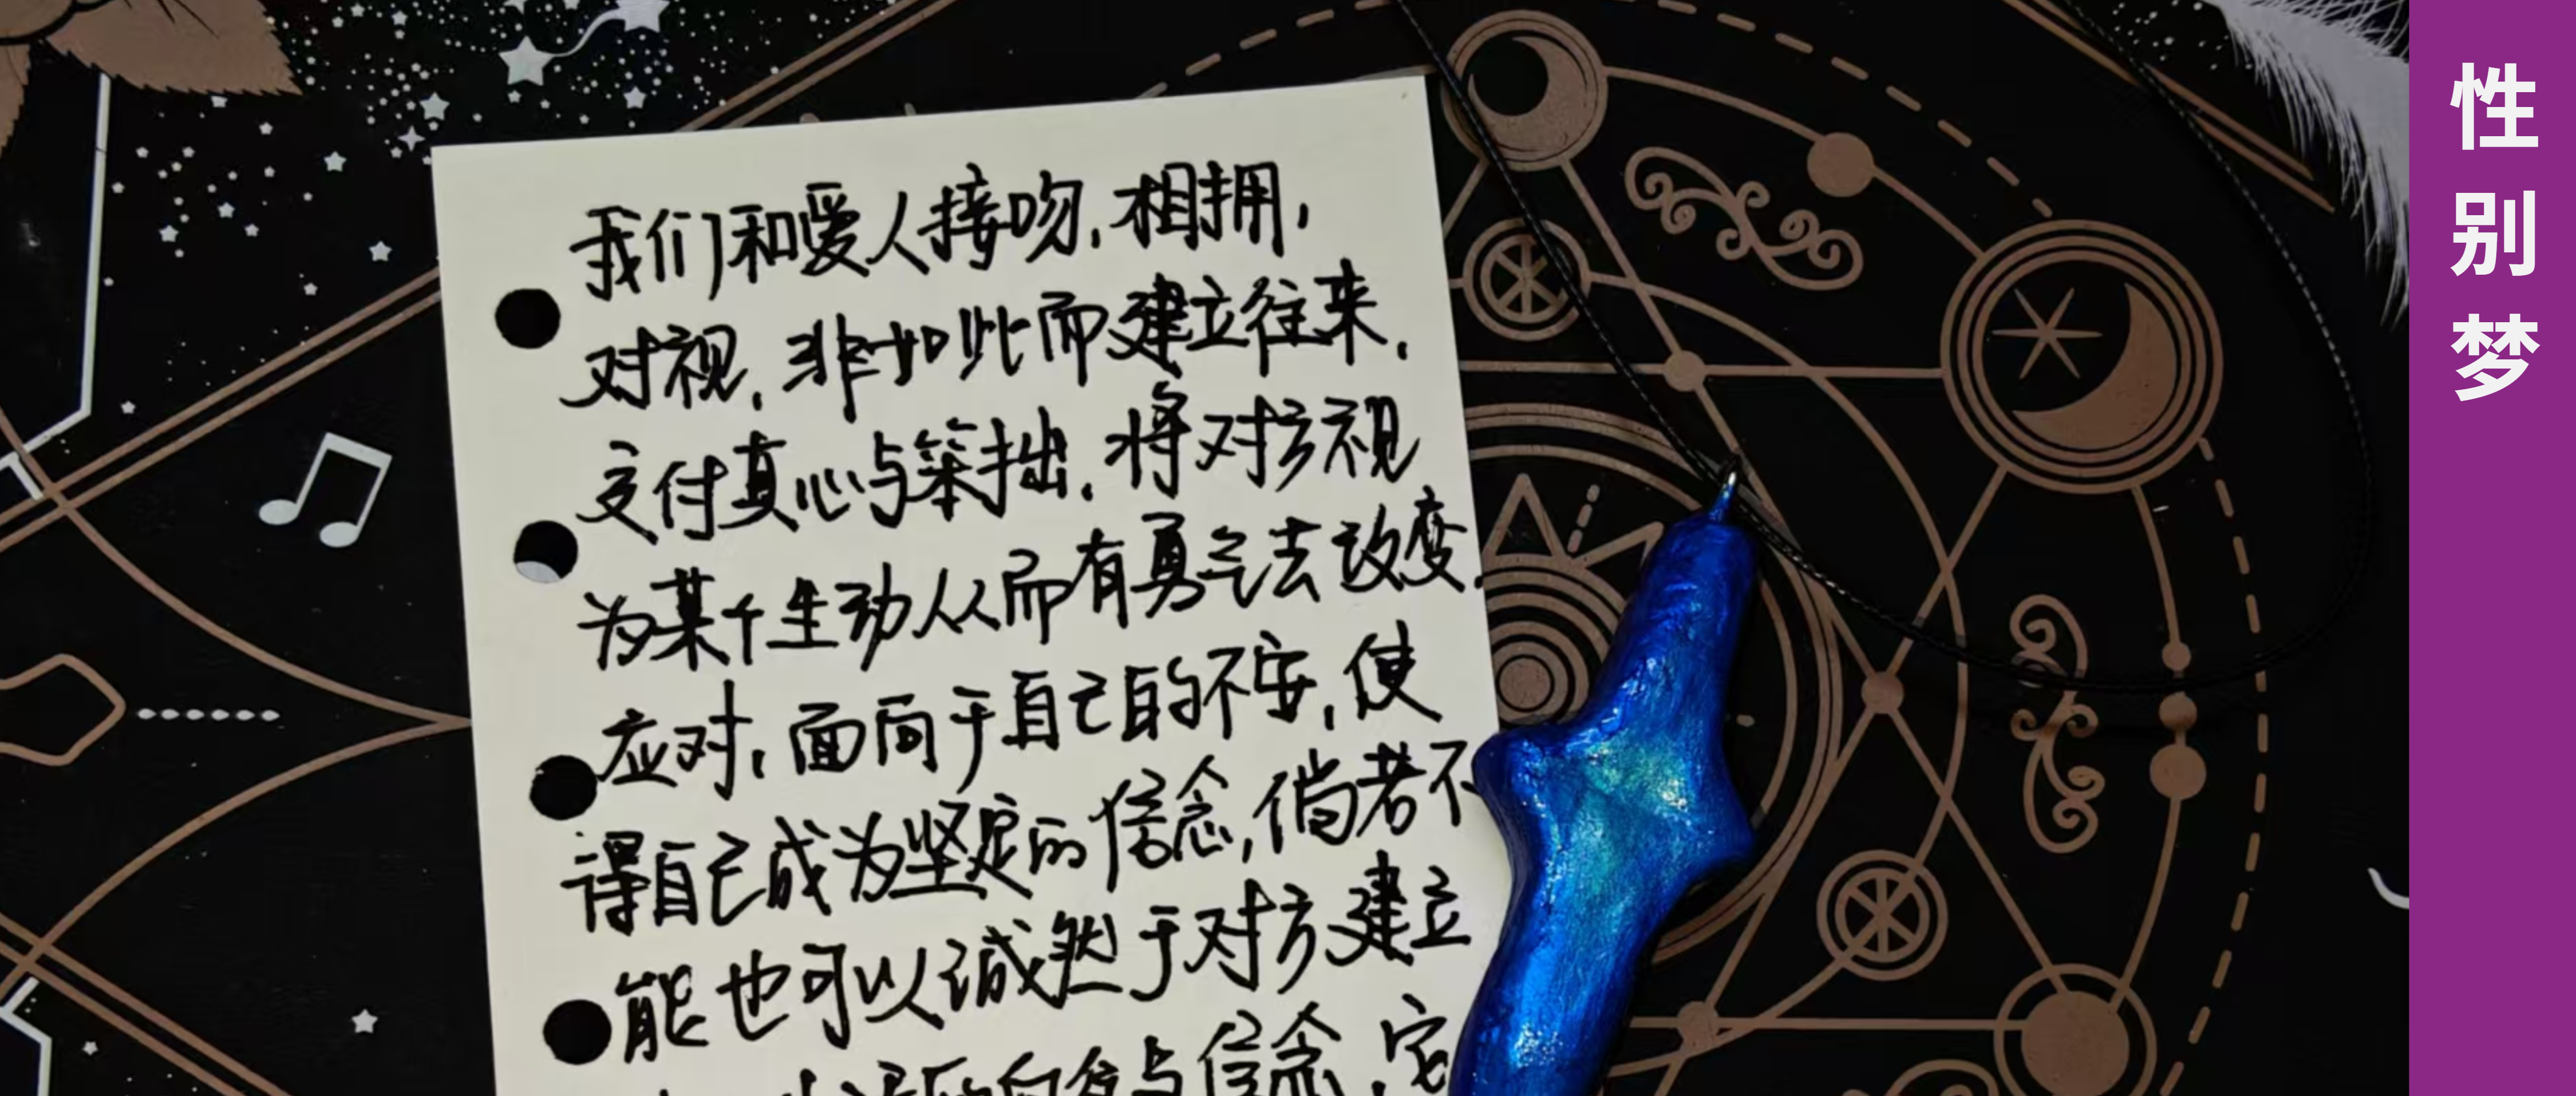 我们和爱人接吻，相拥，
对视，非如此而建立往来，
交付真心与笨拙，将对方视
为某个生动从而有勇气去改变，
应对，面向于自己的不安，使
得自己成为坚定的信念，倘若不
能也可以诚然于对方建立
与信念，家
性别梦